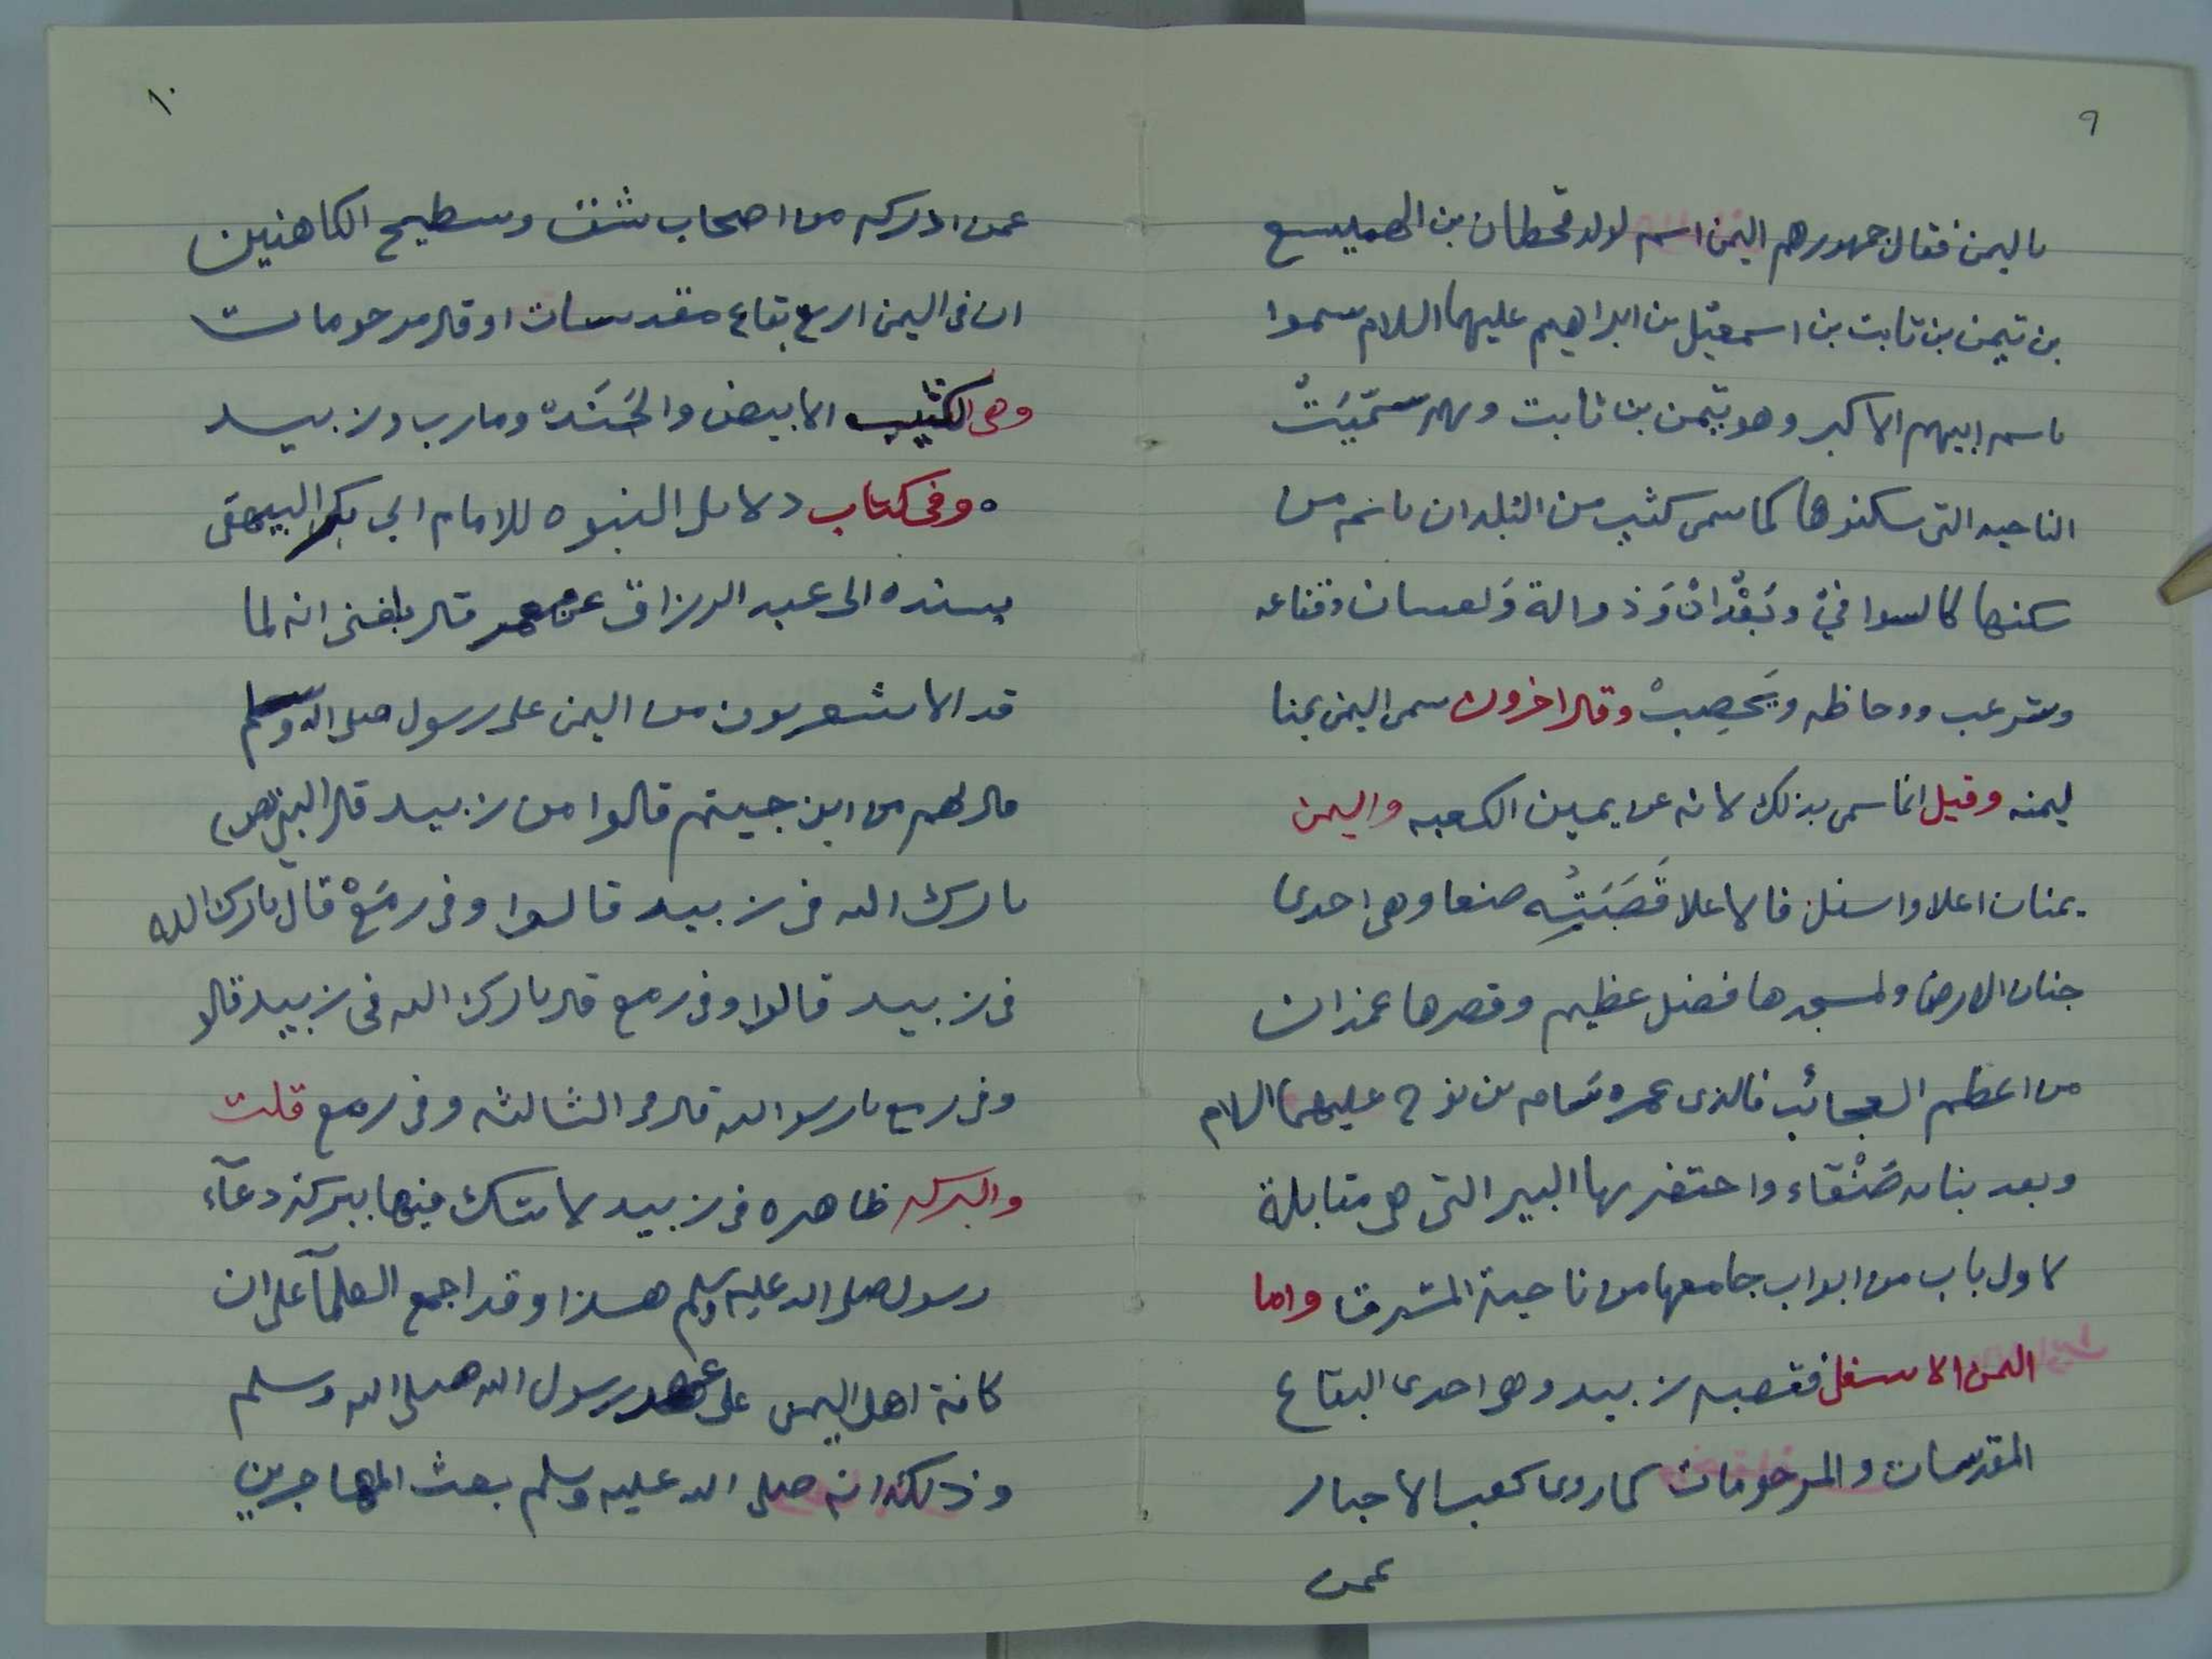 ٩
باليمن فقال جمهورهم اليمن اسم لولد قحطان بن الهميسع
بن تيمن بن ثابت بن اسمعيل بن ابراهيم عليهما السلام سموا
باسم ابيهم الاكبر وهو تيمن بن ثابت وبهم سمّيَتْ
الناحيه التى سكنوها كما سمى كثير من البلدان باسم من
سكنها كالسوا فيْ وبَعْدانْ وَذوالة وَلعسان
وشرعب ووحاظه ويَحصِبْ وقال اخرون سمى اليمن يمنا
ليمنه وقيل انما سمى بذلك لانه عن يمين الكعبه واليمن
يمنان اعلا واسفل فالاعلا قَصَبَتُه صنعا وهى احدى
جنان الارض ولمسجدها فضل عظيم وقصرها غمدان
من اعظم العجائب فالذى عمره سَام بن نوح عليهما السلام
وبعد بنايه صَنْعَاء واحتفر بها البير التى هى مقابلة
لاول باب من ابواب جامعها من ناحية المشرق واما
اليمن الاسفل فقصبه زبيد وهى احدى البقاع
المقدسات والمرحومات كما روى كعب الاحبار
عمن
١٠
عمن ادركه من اصحاب شق وسطيح الكاهنين
ان فى اليمن اربع بقاع مقدسات او قال مرحومات
وهى الكثيب الابيض والجَنَدْ ومارب وزبيد
ه وفى كتاب دلايل النبوه للامام ابى بكر البيهقى
بسنده الى عبد الرزاق عن معمر قال بلغنى انه لما
قدم الاشعريون من اليمن على رسول صلى الله وسلم
قال لهم من اين جيتم قالوا من زبيد قال النبي (ص)
بارك الله فى زبيد قالوا وفى رمَعْ قال بارك الله
فى زبيد قالوا وفى رمع قال بارك الله فى زبيد قالو
وفى رمع يا رسو الله قال فى الثالثه وفى رمع قلت
والبركه ظاهره فى زبيد لا شك فيها ببركة دعآء
رسول صلى الله عليه وسلم هسذا وقد اجمع العلمآ على ان
كافة اهل اليمن على عهد رسول الله صلى الله وسلم
وذلك انه صلى الله عليه وسلم بعث المهاجرين